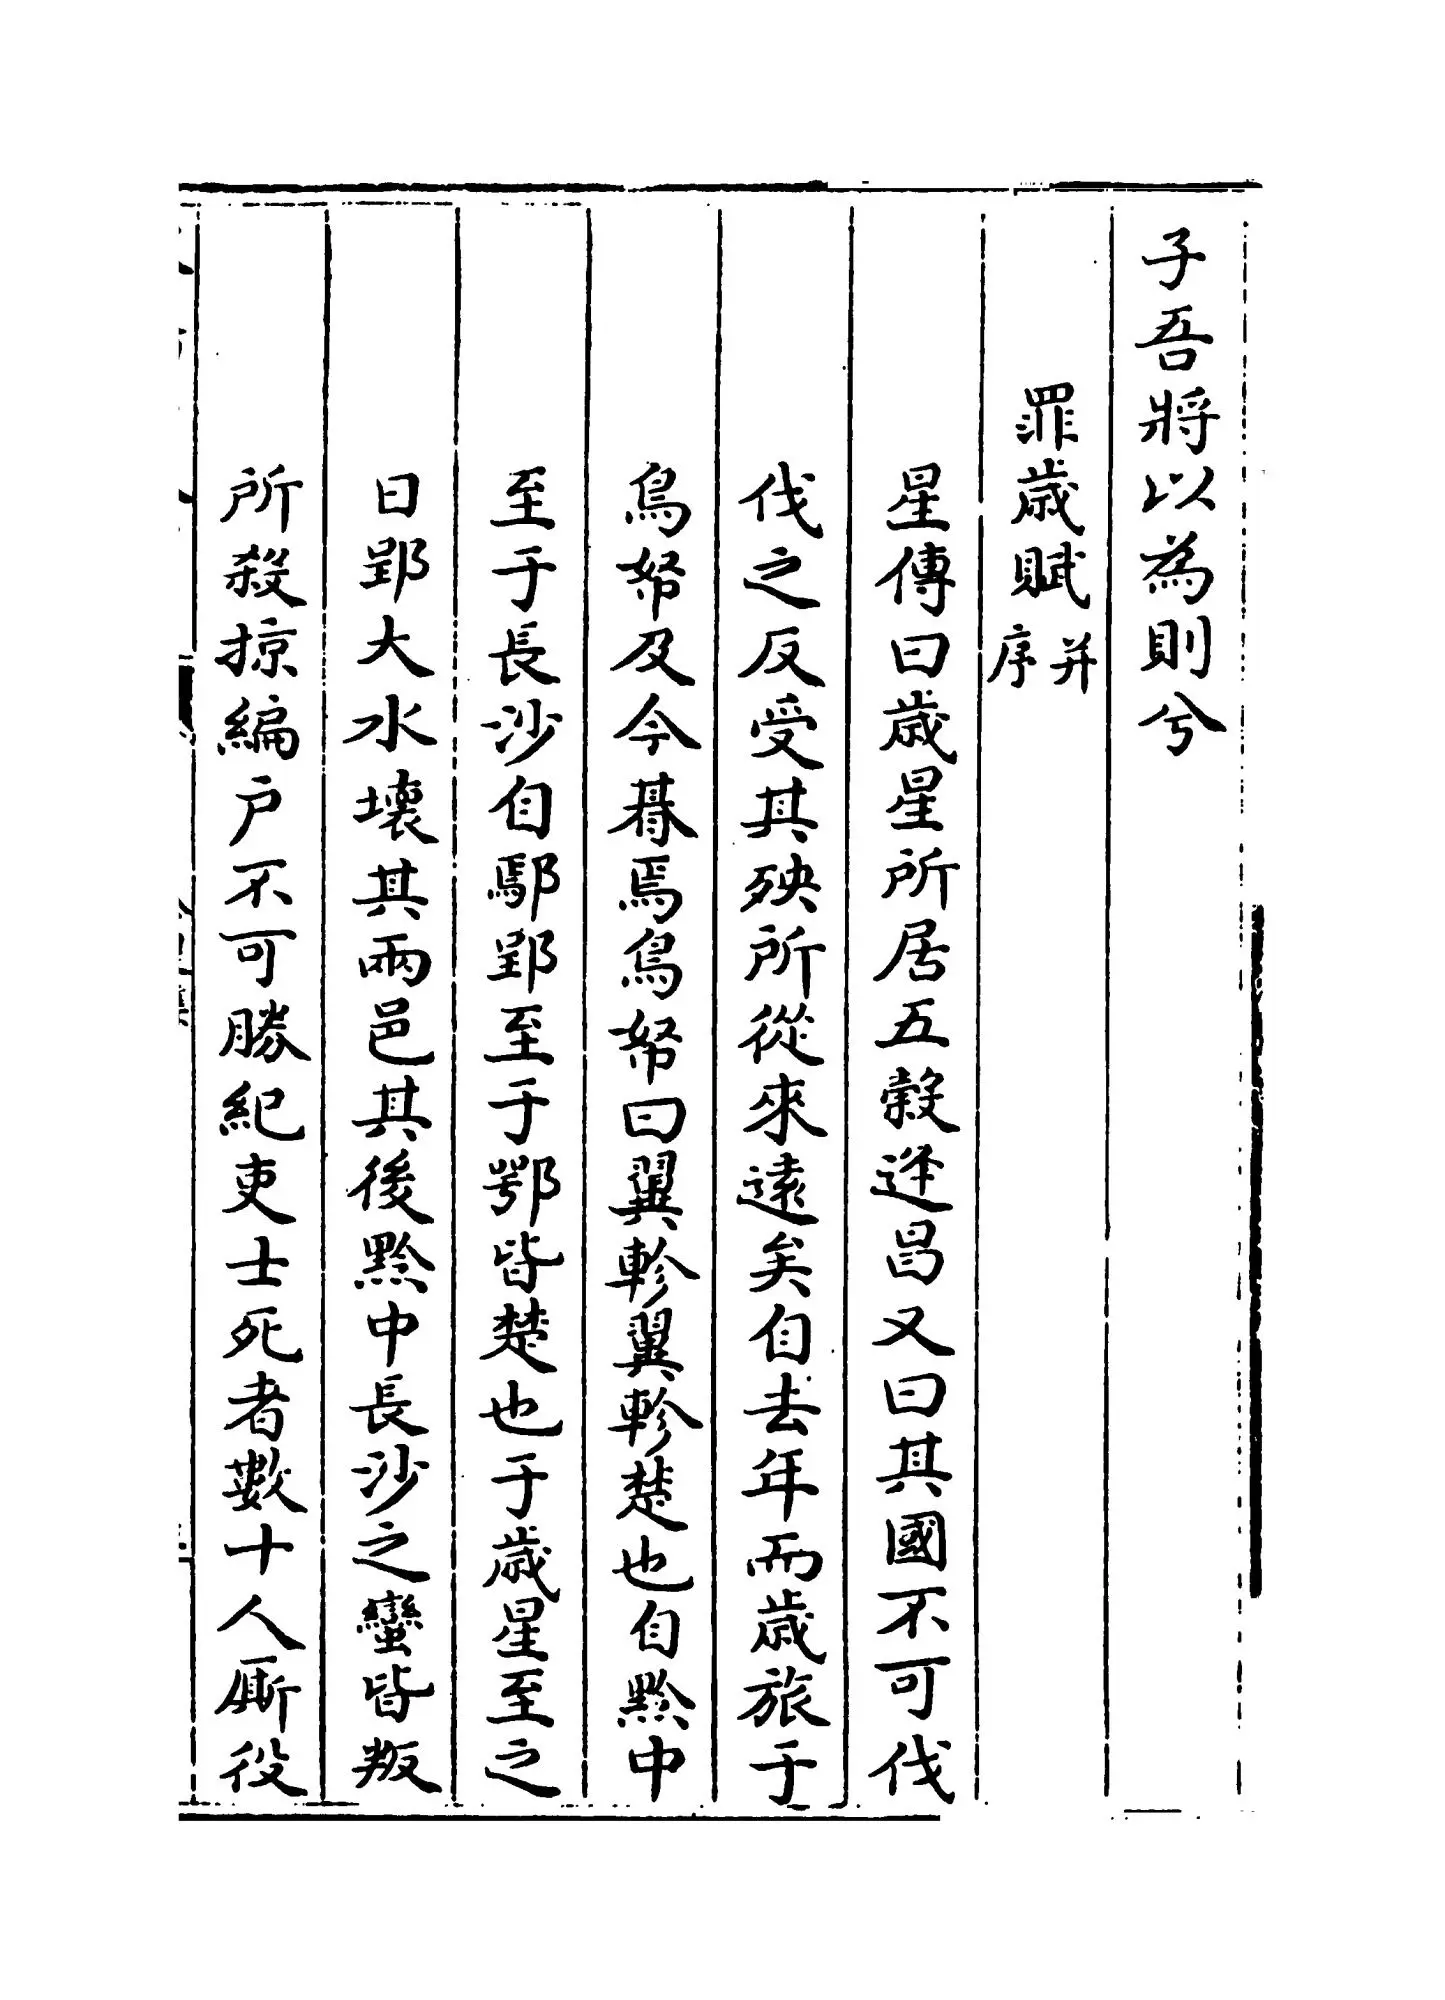 子吾將以為則兮
罪歳賦并序
星傳曰歳星所居五榖逄昌又曰其國不可伐
伐之反受其殃所從來遠矣自去年而歳旅于
鳥帑及今朞焉鳥帑曰翼軫翼軫楚也自黔中
至于長沙自鄢郢至于鄂皆楚也于歳星至之
日郢大水壊其兩邑其後黔中長沙之蠻皆叛
所殺掠編户不可勝紀吏士死者數十人厮役